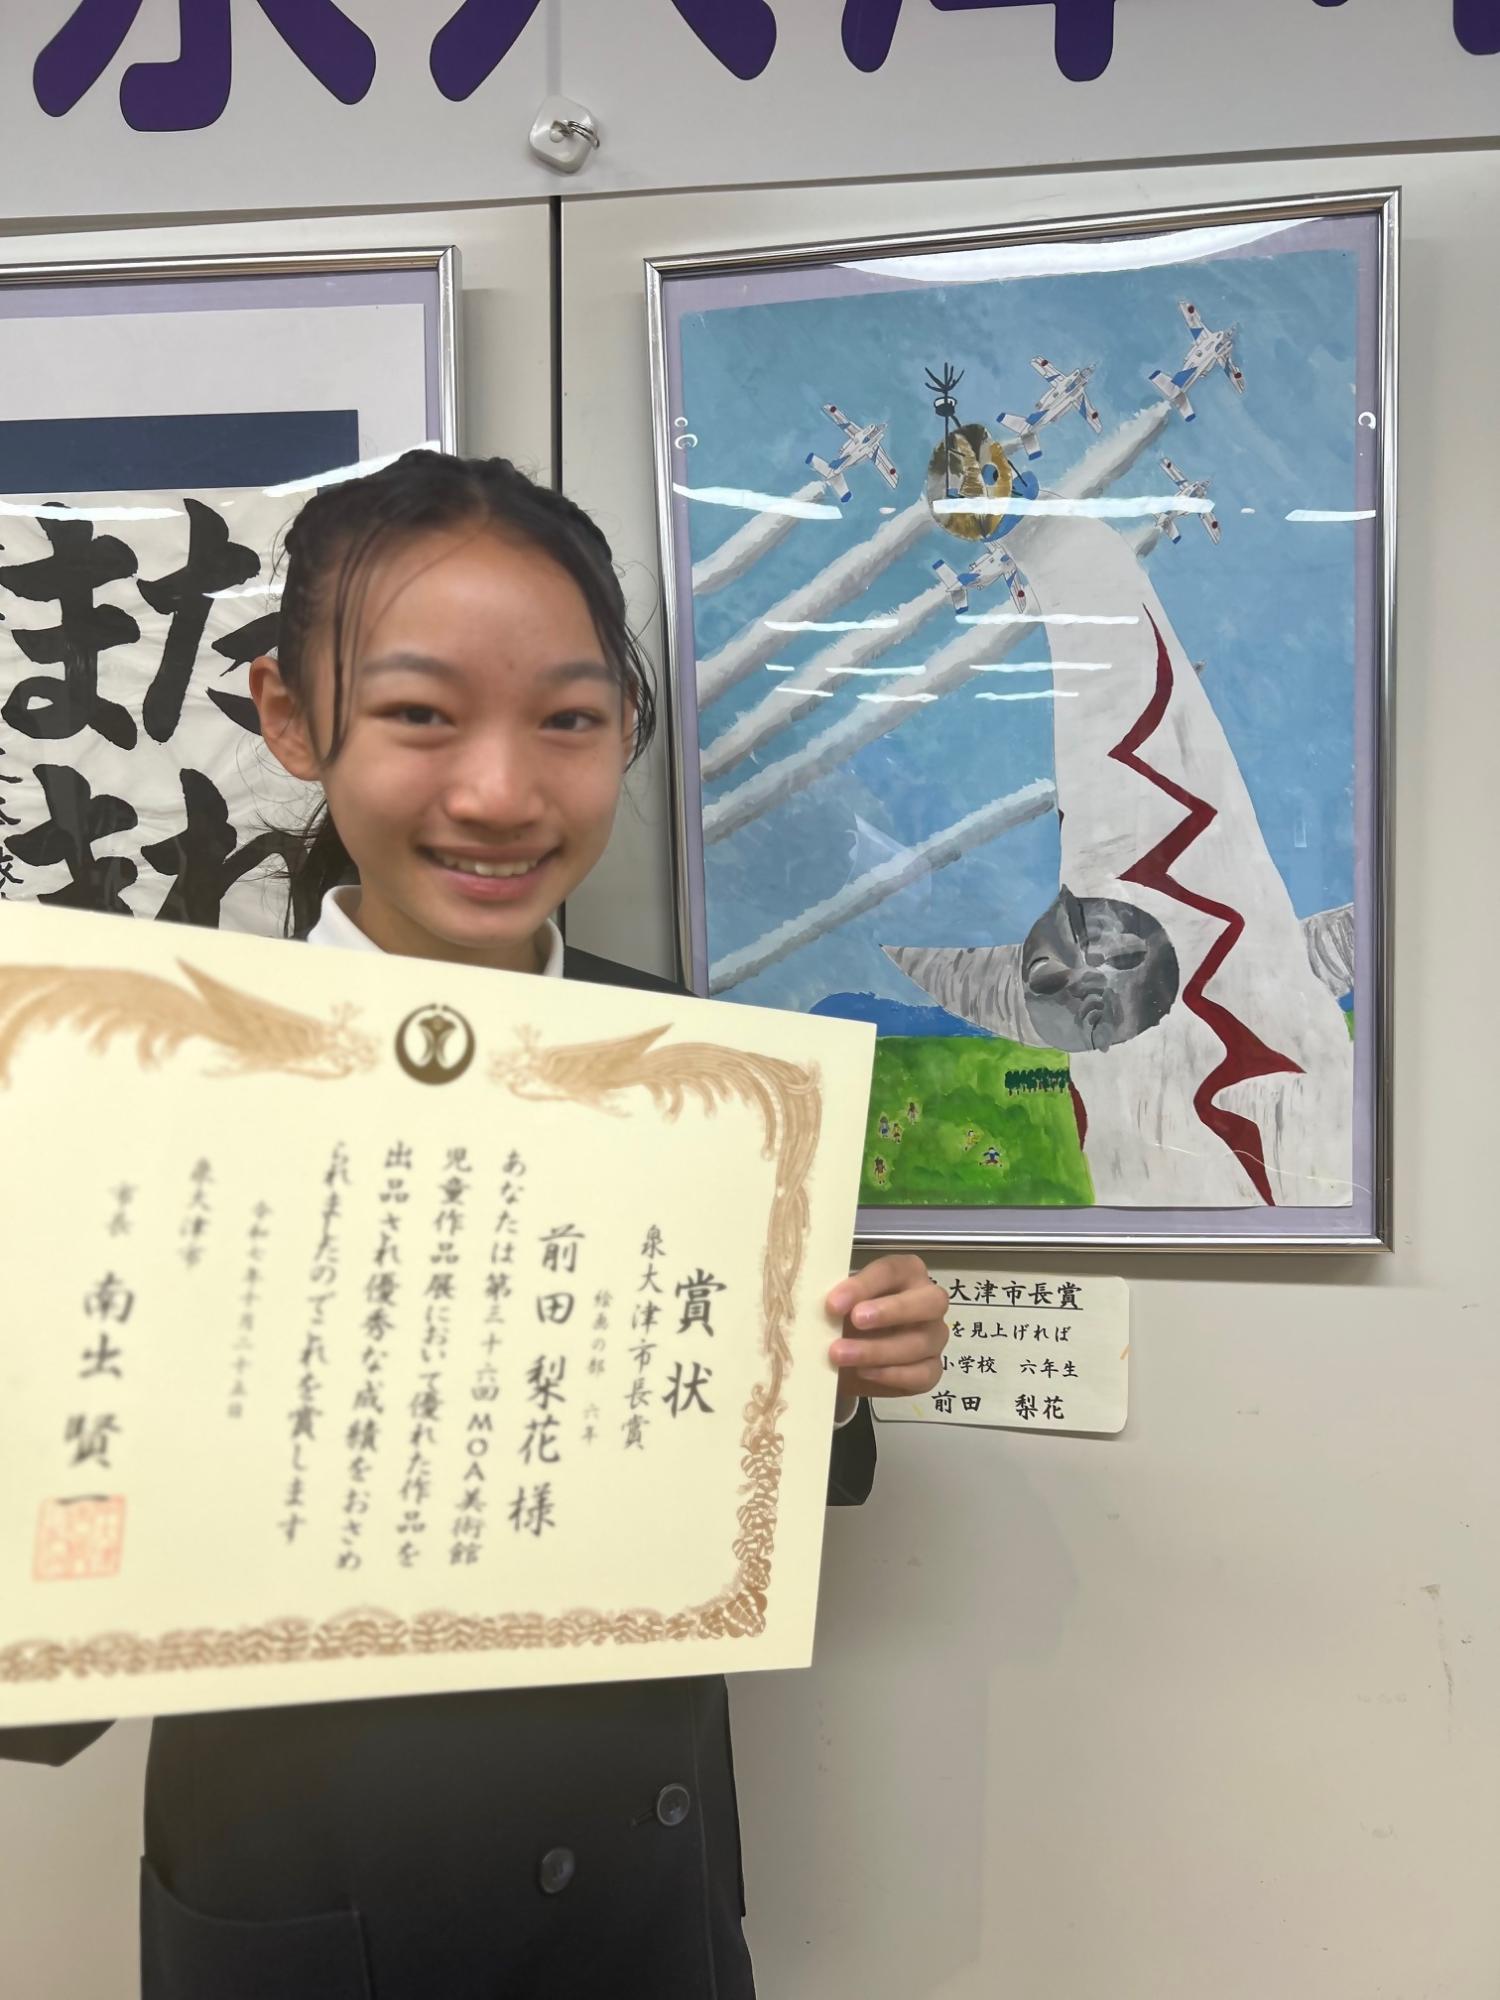 泉大津市
また
あわ
賞状
泉大津市長賞
絵画の部 六年
前田 梨花 様
あなたは第三十六回MOA美術館
児童作品展において優れた作品を
出品され優秀な成績をおさめ
られましたのでこれを賞します
令和七年十月二十五日
泉大津市
市長 南出 賢一
大津市長賞
を見上げれば
小学校 六年生
前田 梨花